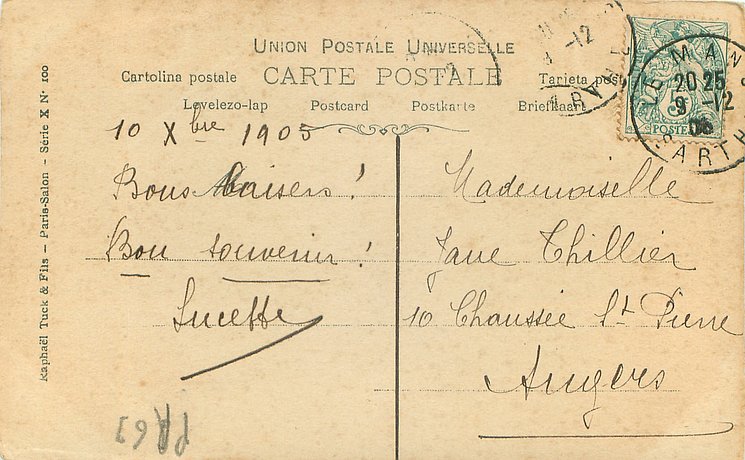 UNION POSTALE UNIVERSELLE
Cartolina postale CARTE POSTALE Tarjeta post
Levelezo-lap Postcard Postkarte Briefkaart
Raphaël Tuck & Fils — Paris-Salon — Série X No 100
10 Xbre 1905
Bons Baisers!
Bon souvenir!
Lucette
Mademoiselle
Jane Thillier
10 Chaussée St Pierre
Angers
LE MANS
20 25
9 -12
05
SARTHE
-12
POSTES